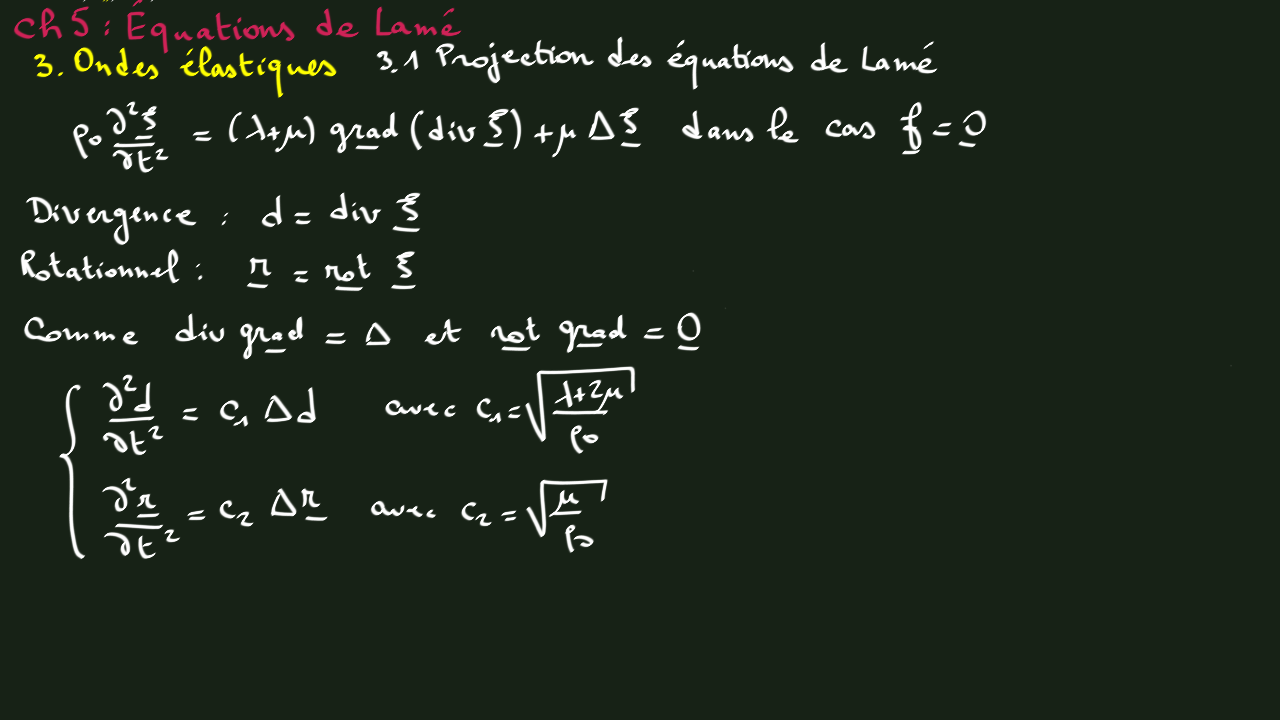 Ch 5 : Équations de Lamé
3. Ondes élastiques 3.1 Projection des équations de Lamé
ρ₀ ∂²ξ/∂t² = (λ+μ) grad (div ξ) + μ Δξ dans le cas f = 0
Divergence : d = div ξ
Rotationnel : r = rot ξ
Comme div grad = Δ et rot grad = 0
∂²d/∂t² = c₁ Δd avec c₁ = √((λ+2μ)/ρ₀)
∂²r/∂t² = c₂ Δr avec c₂ = √(μ/ρ₀)